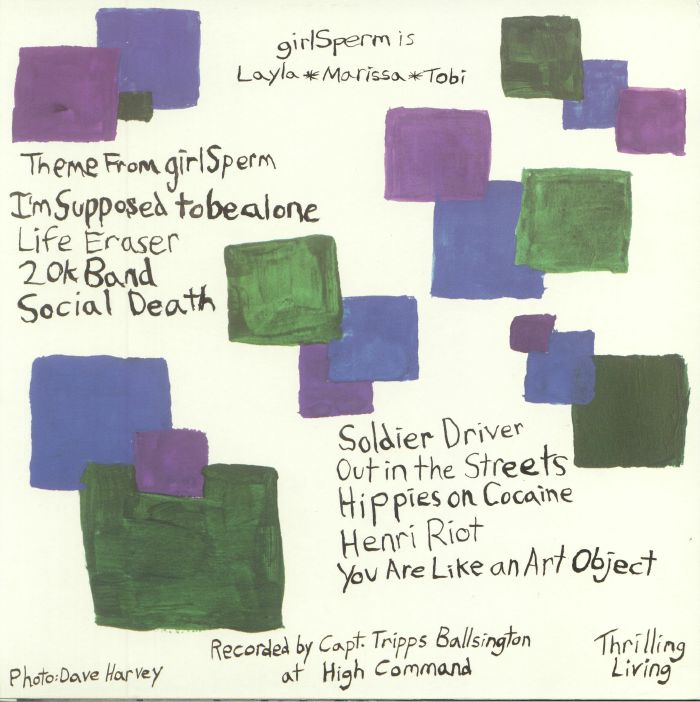 girlSperm is
Layla*Marissa*Tobi
Theme From girlSperm
I'm Supposed to be alone
Life Eraser
20k Band
Social Death
Soldier Driver
Out in the Streets
Hippies on Cocaine
Henri Riot
You Are Like an Art Object
Recorded by Capt. Tripps Ballsington
at High Command
Thrilling
Living
Photo: Dave Harvey